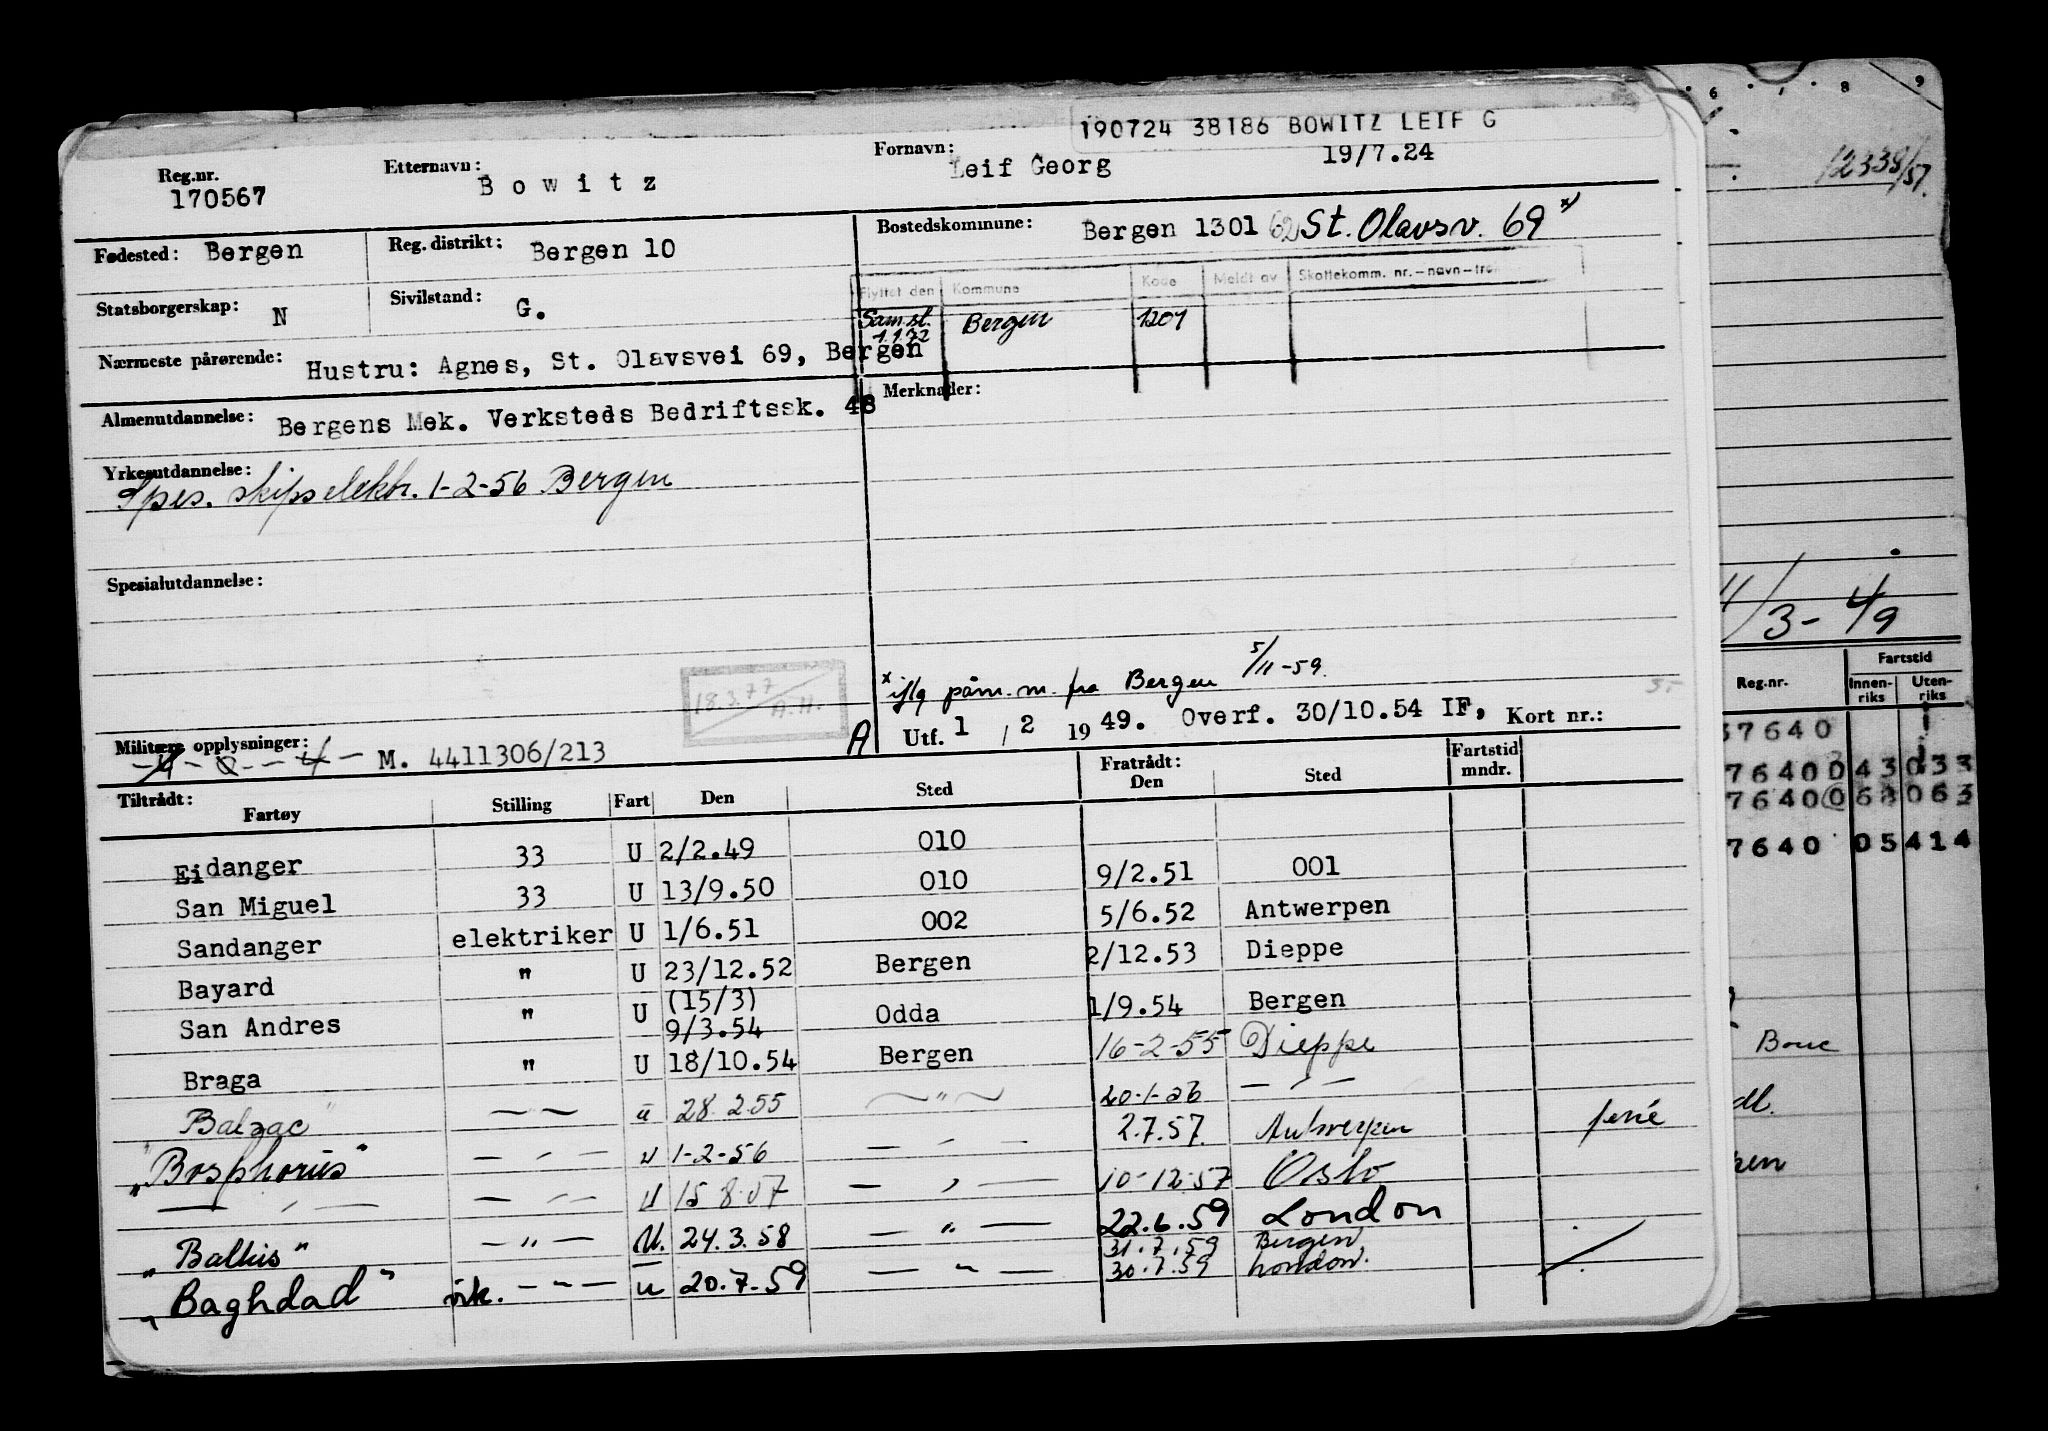 190724 38186 BOWITZ LEIF G
Reg.nr. 170567 Etternavn: Bowitz Fornavn: Leif Georg 19/7.24
Fødested: Bergen Reg. distrikt: Bergen 10 Bostedskommune: Bergen 1301 62 St. Olavsv. 69 x)
Statsborgerskap: N Sivilstand: G.
Flyttet den Kommune Kode Meldt av Skattekomm. nr.-navn-tr
Sam.sl. 1.1.72 Bergen 1201
Nærmeste pårørende: Hustru: Agnes, St. Olavsvei 69, Bergen
Almenutdannelse: Bergens Mek. Verksteds Bedriftssk. 48
Merknader:
Yrkesutdannelse: Spes. skipselektr. 1-2-56 Bergen
Spesialutdannelse:
18.3.77 A.H.
x iflg påm. m. fra Bergen 5/11-59.
Militære opplysninger: M. 4411306/213
A Utf. 1 / 2 19 49. Overf. 30/10.54 IF, Kort nr.:
Tiltrådt: Fartøy Stilling Fart Den Sted Fratrådt: Den Sted Fartstid mndr.
Eidanger 33 U 2/2.49 010
San Miguel 33 U 13/9.50 010 9/2.51 001
Sandanger elektriker U 1/6.51 002 5/6.52 Antwerpen
Bayard " U 23/12.52 Bergen 2/12.53 Dieppe
San Andres " U (15/3) 9/3.54 Odda 1/9.54 Bergen
Braga " U 18/10.54 Bergen 16-2-55 Dieppe
Balzac" — — u 28.2.55 — " — 20-1-56 — " —
"Bosphorus" — " — u 1-2-56 — " — 2.7.57. Antwerpen ferie
— " — — " — U 15.8.57 — " — 10-12-57 Oslo
"Balkis" — " — U. 24.3.58 — " — 22.6.59 London
31.7.59 Bergen
"Baghdad" vik. — " — u 20.7.59 — " — 30.7.59 London.
6 8 9
12338/57.
11/3 - 4/9
Fartstid
Reg.nr. Innenriks Utenriks
37640
7640 0 43 033
7640 0 68 063
7640 05 414
Bouc